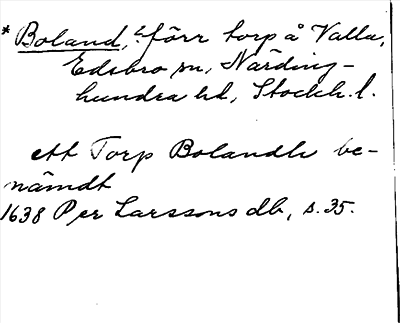 * Boland, förr torp å Valla,
Edsbro sn, Närding-
hundra hd, Stockh. l.
ett Torp Bolandh be-
nämdt
1638 Per Larssons db, s. 35.